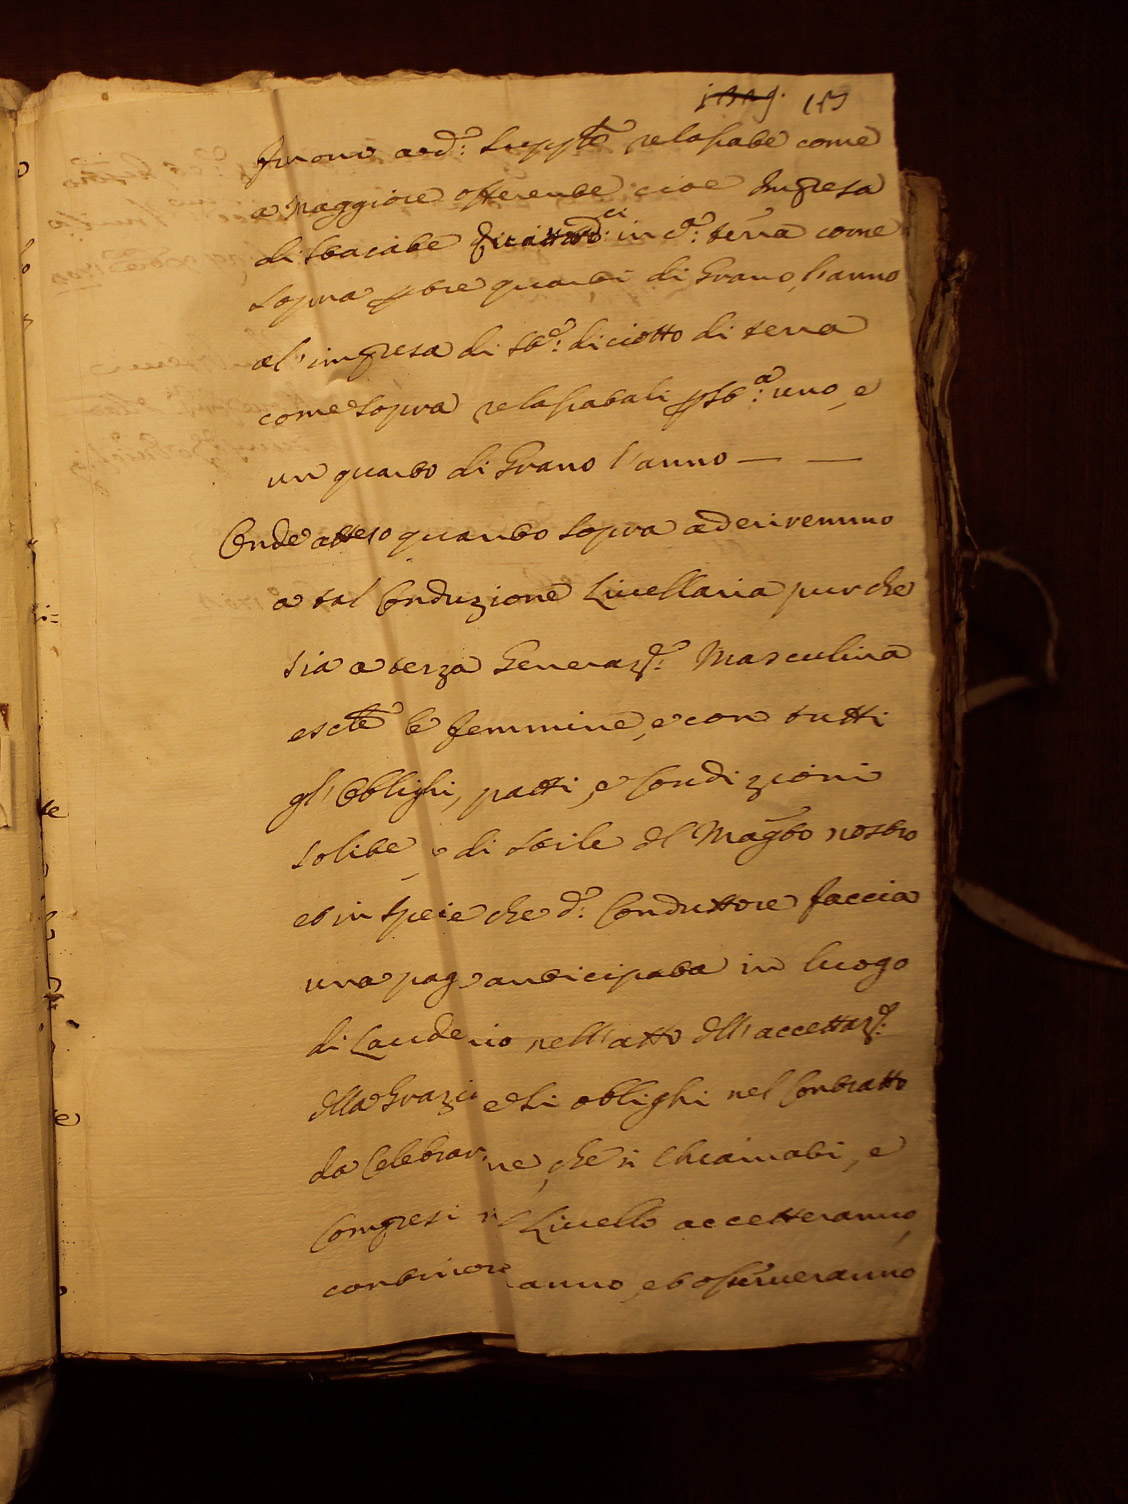 furono a d.º supp.te relassate come
a Maggiore offerente cioè Impresa
di staiate in d.ª terra come
sopra p tre quarti di Grano l'anno
el' impresa di st.e: diciotto di terra
come sopra relassatali p st.ª: uno, e
un quarto di Grano l'anno — —
Onde atteso quanto sopra aderiremmo
a tal Conduzione Livellaria purche
sia a terza Generaz.e: Masculina
escte le femmine, e con tutti
gl' Obblighi, patti, e Condizioni
solite e di stile del Mag.to nostro
et in specie che d.º: Conduttore faccia
una pag.a anticipata in luogo
di Laudemio nell'atto dell'accettaz.e:
della Grazia e si obblighi nel Contratto
da Celebrarne, che i Chiamati, e
Compresi nel Livello accetteranno,
continoveranno, et osserveranno